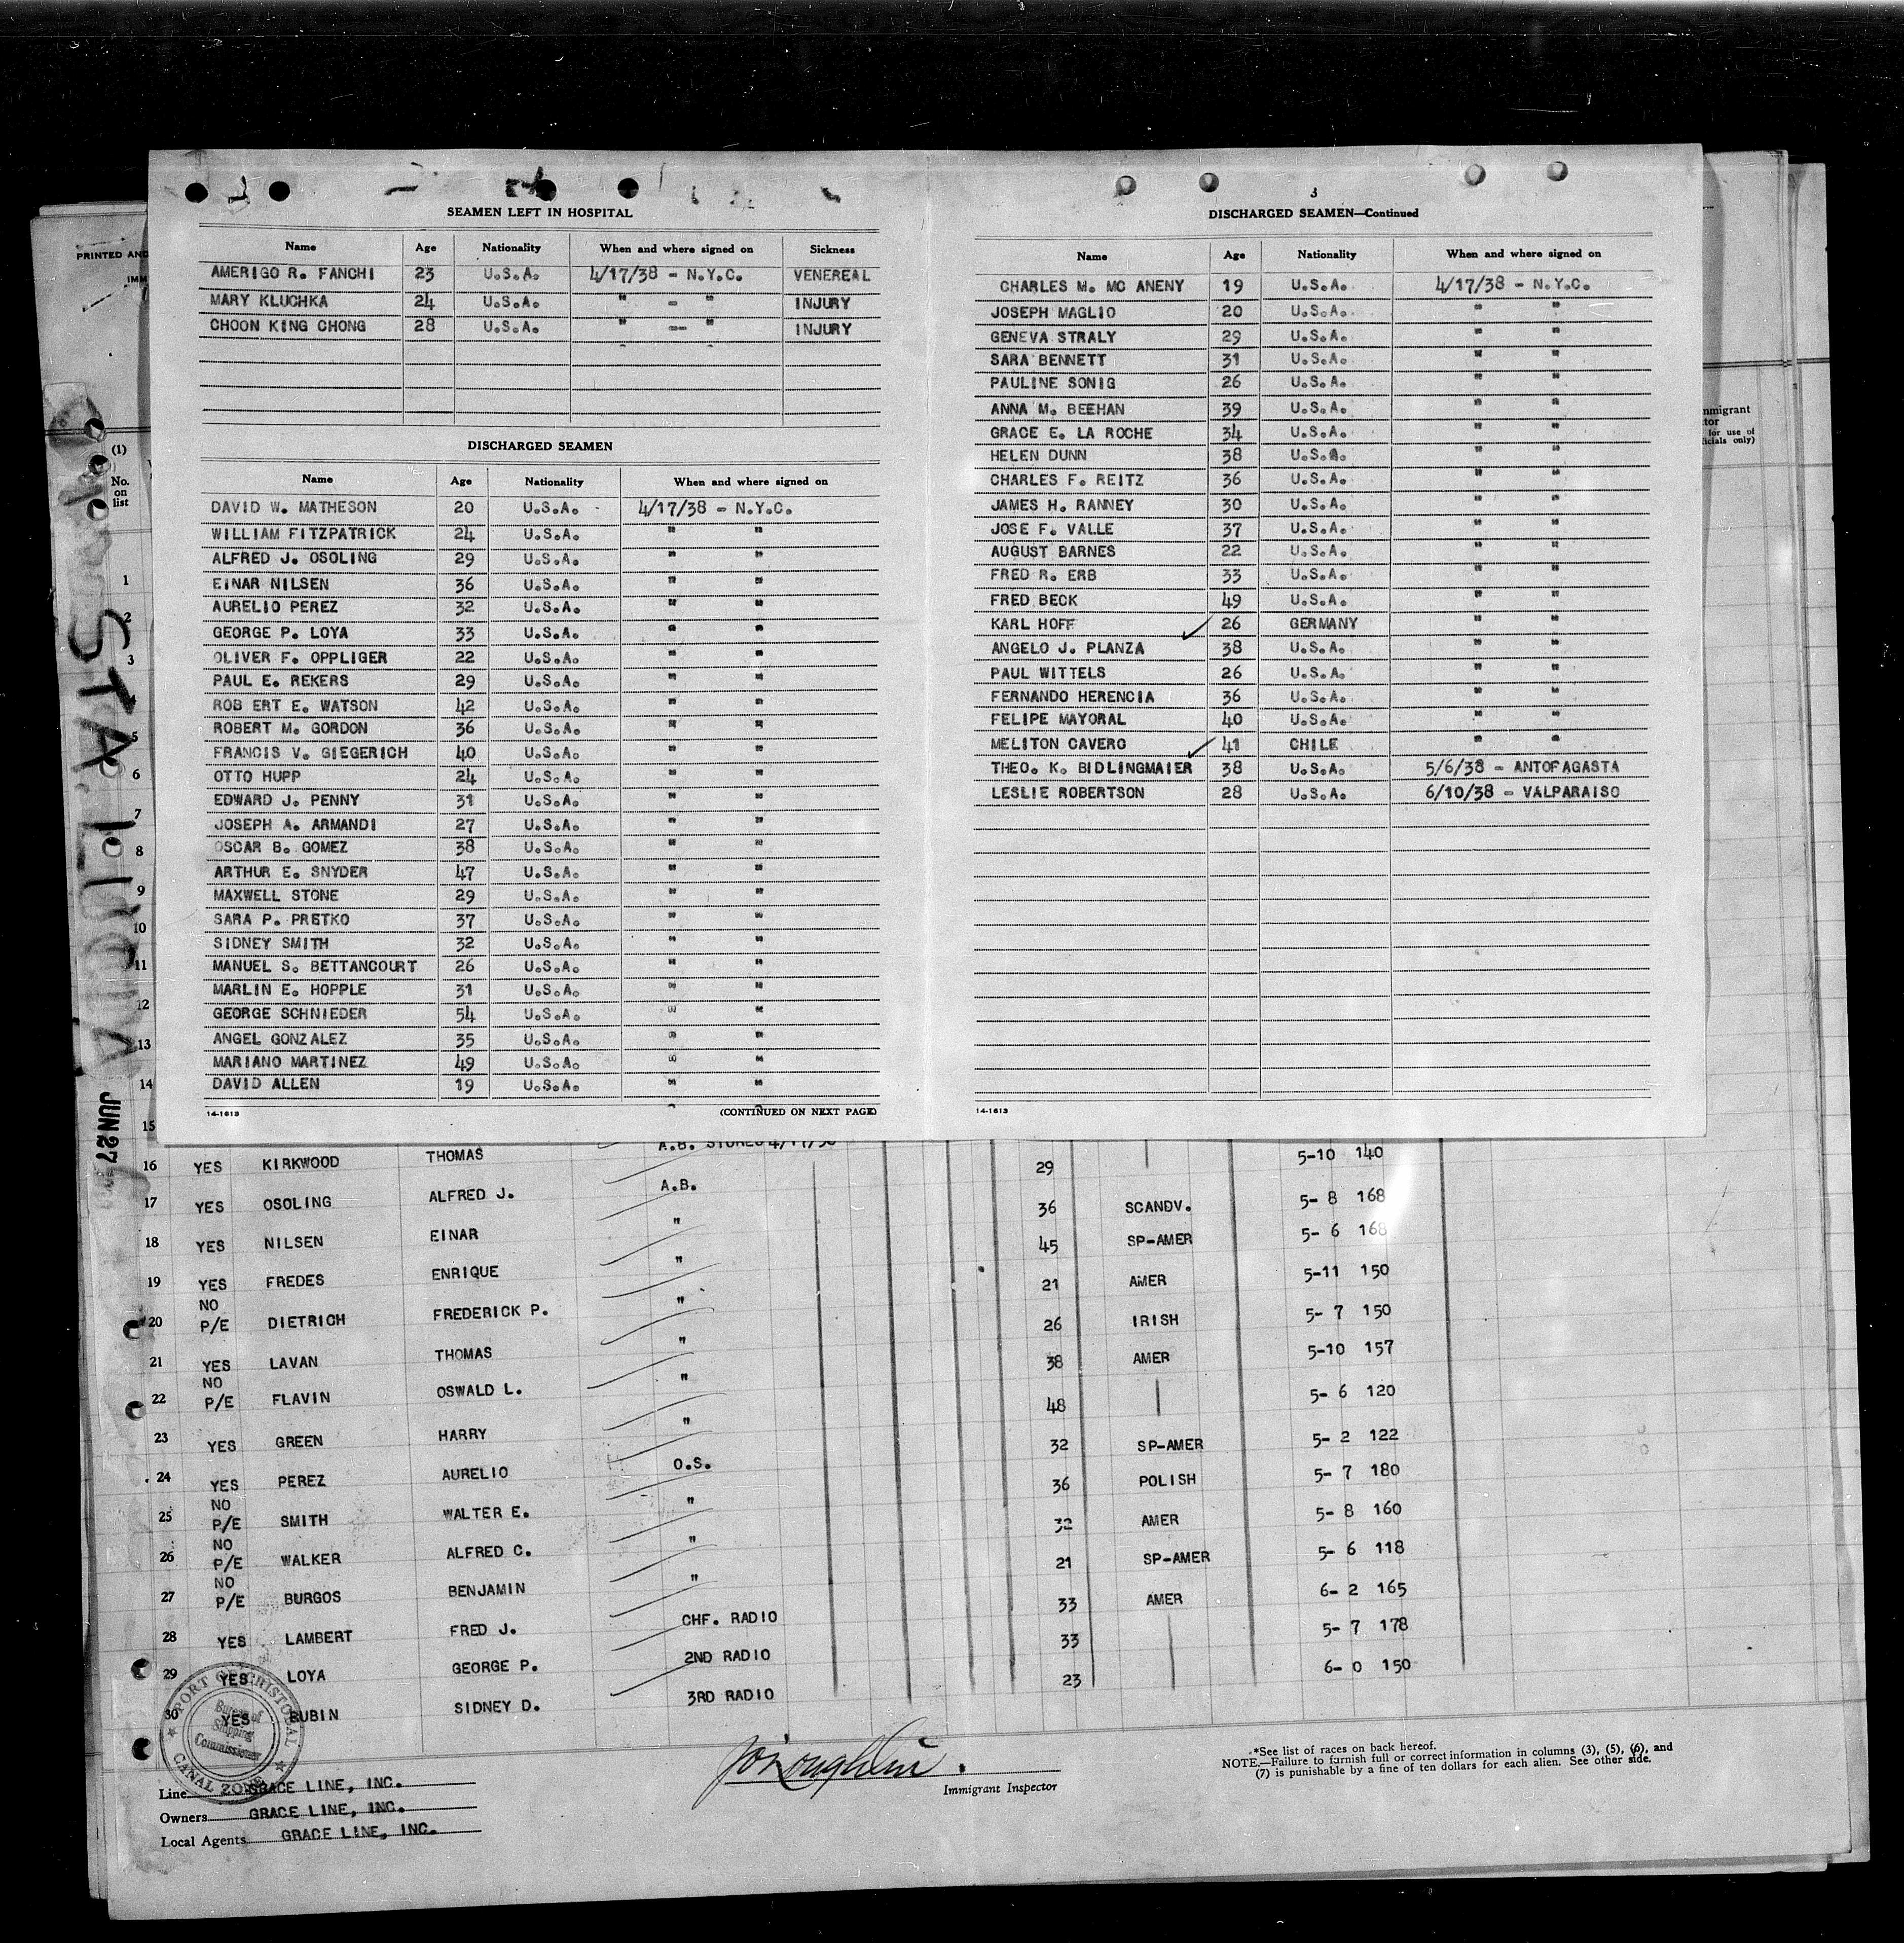 SEAMEN LEFT IN HOSPITAL
Name Age Nationality When and where signed on Sickness
AMERIGO R. FANCHI 23 U.S.A. 4/17/38 - N.Y.C. VENEREAL
MARY KLUCHKA 24 U.S.A. " - " INJURY
CHOON KING CHONG 28 U.S.A. " -- " INJURY
DISCHARGED SEAMEN
Name Age Nationality When and where signed on
DAVID W. MATHESON 20 U.S.A. 4/17/38 - N.Y.C.
WILLIAM FITZPATRICK 24 U.S.A. " "
ALFRED J. OSOLING 29 U.S.A. " "
EINAR NILSEN 36 U.S.A. " "
AURELIO PEREZ 32 U.S.A. " "
GEORGE P. LOYA 33 U.S.A. " "
OLIVER F. OPPLIGER 22 U.S.A. " "
PAUL E. REKERS 29 U.S.A. " "
ROB ERT E. WATSON 42 U.S.A. " "
ROBERT M. GORDON 36 U.S.A. " "
FRANCIS V. GIEGERICH 40 U.S.A. " "
OTTO HUPP 24 U.S.A. " "
EDWARD J. PENNY 31 U.S.A. " "
JOSEPH A. ARMANDI 27 U.S.A. " "
OSCAR B. GOMEZ 38 U.S.A. " "
ARTHUR E. SNYDER 47 U.S.A. " "
MAXWELL STONE 29 U.S.A. " "
SARA P. PRETKO 37 U.S.A. " "
SIDNEY SMITH 32 U.S.A. " "
MANUEL S. BETTANCOURT 26 U.S.A. " "
MARLIN E. HOPPLE 31 U.S.A. " "
GEORGE SCHNIEDER 54 U.S.A. " "
ANGEL GONZALEZ 35 U.S.A. " "
MARIANO MARTINEZ 49 U.S.A. " "
DAVID ALLEN 19 U.S.A. " "
14-1613 (CONTINUED ON NEXT PAGE)
3
DISCHARGED SEAMEN—Continued
Name Age Nationality When and where signed on
CHARLES M. MC ANENY 19 U.S.A. 4/17/38 - N.Y.C.
JOSEPH MAGLIO 20 U.S.A. " "
GENEVA STRALY 29 U.S.A. " "
SARA BENNETT 31 U.S.A. " "
PAULINE SONIG 26 U.S.A. " "
ANNA M. BEEHAN 39 U.S.A. " "
GRACE E. LA ROCHE 34 U.S.A. " "
HELEN DUNN 38 U.S.A. " "
CHARLES F. REITZ 36 U.S.A. " "
JAMES H. RANNEY 30 U.S.A. " "
JOSE F. VALLE 37 U.S.A. " "
AUGUST BARNES 22 U.S.A. " "
FRED R. ERB 33 U.S.A. " "
FRED BECK 49 U.S.A. " "
KARL HOFF 26 GERMANY " "
ANGELO J. PLANZA 38 U.S.A. " "
PAUL WITTELS 26 U.S.A. " "
FERNANDO HERENCIA 36 U.S.A. " "
FELIPE MAYORAL 40 U.S.A. " "
MELITON CAVERO 41 CHILE " "
THEO. K. BIDLINGMAIER 38 U.S.A. 5/6/38 - ANTOFAGASTA
LESLIE ROBERTSON 28 U.S.A. 6/10/38 - VALPARAISO
14-1613
PRINTED AND
IMM
(1)
No.
on
list
1
2
3
4
5
6
7
8
9
10
11
12
13
14
15
JUN 27
for use of
icials only)
A.B. STORES 4/17/38
16 YES KIRKWOOD THOMAS 29 5-10 140
17 YES OSOLING ALFRED J. A.B. 36 SCANDV. 5- 8 168
18 YES NILSEN EINAR " 45 SP-AMER 5- 6 168
19 YES FREDES ENRIQUE " 21 AMER 5-11 150
20 NO P/E DIETRICH FREDERICK P. " 26 IRISH 5- 7 150
21 YES LAVAN THOMAS " 38 AMER 5-10 157
22 NO P/E FLAVIN OSWALD L. " 48 5- 6 120
23 YES GREEN HARRY " 32 SP-AMER 5- 2 122
24 YES PEREZ AURELIO O.S. 36 POLISH 5- 7 180
25 NO P/E SMITH WALTER E. " 32 AMER 5- 8 160
26 NO P/E WALKER ALFRED C. " 21 SP-AMER 5- 6 118
27 NO P/E BURGOS BENJAMIN " 33 AMER 6- 2 165
28 YES LAMBERT FRED J. CHF. RADIO 33 5- 7 178
29 YES LOYA GEORGE P. 2ND RADIO 23 6- 0 150
30 YES RUBIN SIDNEY D. 3RD RADIO
PORT OF CRISTOBAL
Bureau of
Shipping
Commissioner
CANAL ZONE
Line GRACE LINE, INC.
Owners GRACE LINE, INC.
Local Agents GRACE LINE, INC.
Immigrant Inspector
*See list of races on back hereof.
NOTE.—Failure to furnish full or correct information in columns (3), (5), (6), and
(7) is punishable by a fine of ten dollars for each alien. See other side.